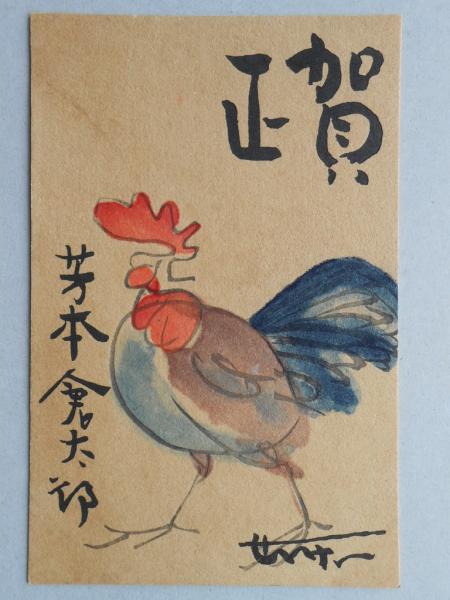 賀正
芳本倉太郎